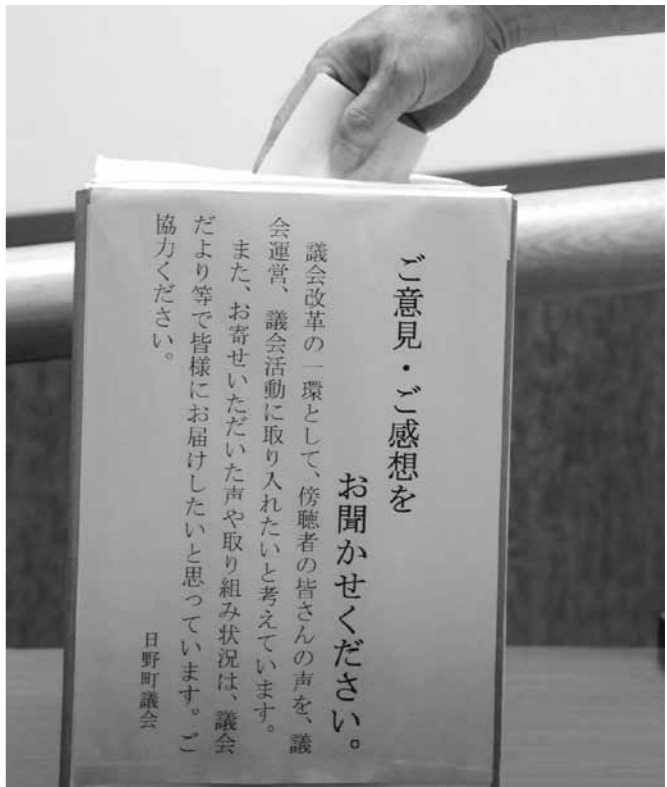 ご意見・ご感想を
お聞かせください。
議会改革の一環として、傍聴者の皆さんの声を、議
会運営、議会活動に取り入れたいと考えています。
また、お寄せいただいた声や取り組み状況は、議会
だより等で皆様にお届けしたいと思っています。ご
協力ください。
日野町議会